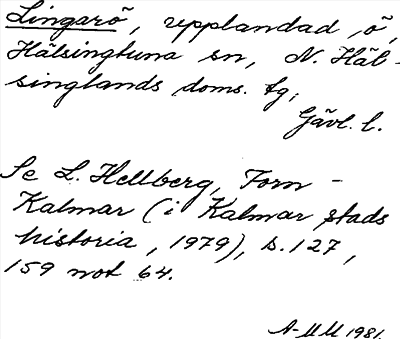 Lingarö, upplandad, ö,
Hälsingtuna sn, N. Häl-
singlands doms. tg,
Gävl. l.
Se L. Hellberg, Forn-
Kalmar (i Kalmar stads
historia, 1979), s. 127,
159 not 64.
A-MM 1981.